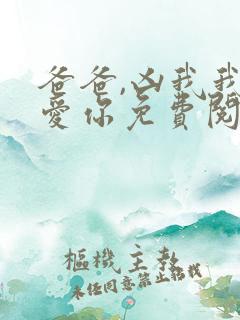 爸爸,凶我我
愛你免費閱
樞機主教
未經同意禁止轉載